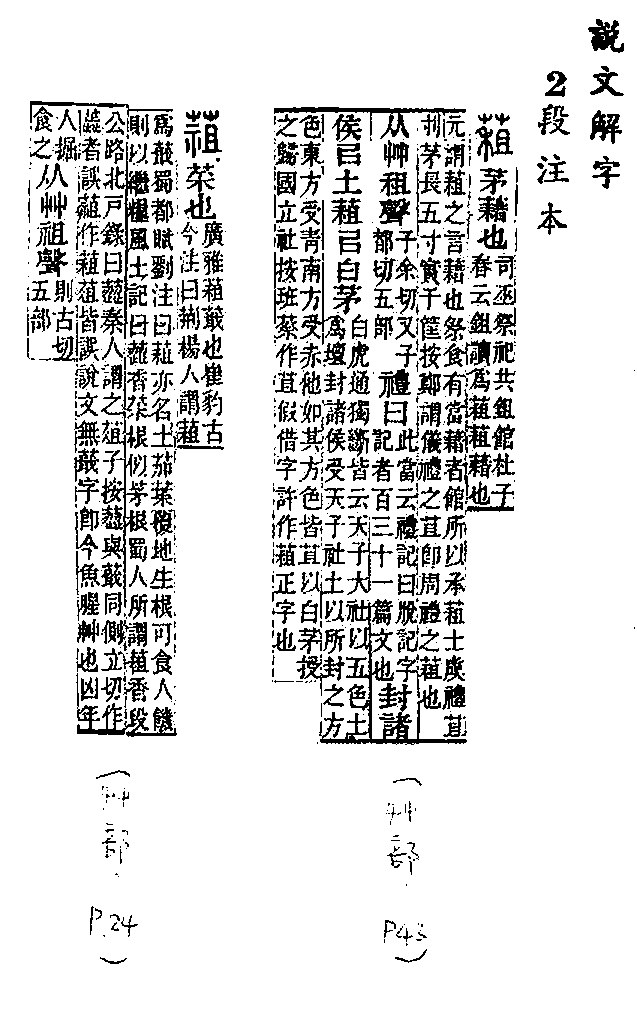 說文解字
2段注本
蒩 茅藉也 司巫祭祀共鉏館杜子
春云鉏讀爲蒩蒩藉也
元謂蒩之言藉也祭食有當藉者館所以承蒩士虞禮苴
刌茅長五寸實于筐按鄭謂儀禮之苴卽周禮之蒩也
从艸租聲 子余切又子
都切五部 禮曰 此當云禮記曰脫記字
記者百三十一篇文也 封諸
侯㠯土蒩㠯白茅 白虎通獨斷皆云天子大社以五色土
爲壇封諸侯受天子社土以所封之方
色東方受青南方受赤他如其方色皆苴以白茅授
之歸國立社按班蔡作苴假借字許作蒩正字也
(艸部 P43)
䔃 菜也 廣雅蒩蕺也崔豹古
今注曰荆楊人謂蒩
爲蕺蜀都賦劉注曰蒩亦名土茄葉覆地生根可食人饑
則以繼糧風土記曰香菜根似茅根蜀人所謂蒩香段
公路北戶錄曰秦人謂之葅子按與蕺同側立切作
者誤作蒩葅皆誤說文無蕺字卽今魚腥艸也凶年
人掘
食之 从艸祖聲 則古切
五部
(艸部 P.24)